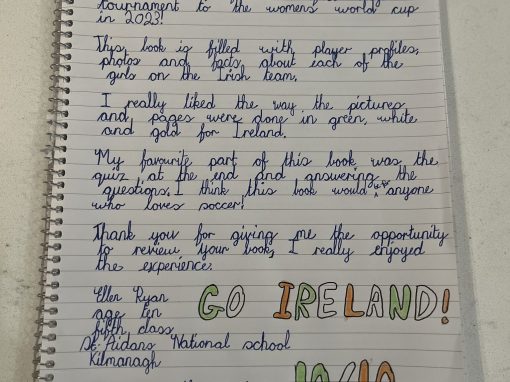 tournament to the womens world cup
in 2023!
This book is filled with player profiles,
photos and facts about each of the
girls on the Irish team.
I really liked the way the pictures
and pages were done in green, white
and gold for Ireland.
My favourite part of this book was the
quiz at the end and answering the
questions. I think this book would anyone
who loves soccer!
Thank you for giving me the opportunity
to review your book, I really enjoyed
the experience.
Ellen Ryan
age ten
fifth class
St. Aidans National school
Kilmanagh
GO IRELAND!
10/10